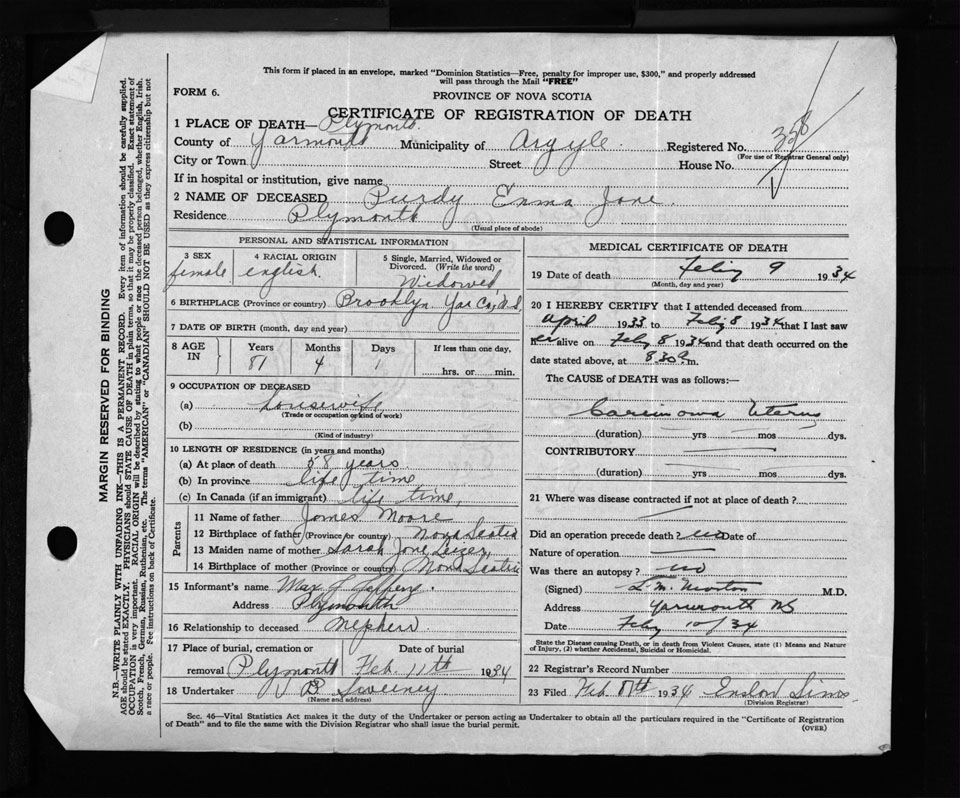 This form if placed in an envelope, marked "Dominion Statistics—Free, penalty for improper use, $300," and properly addressed
will pass through the Mail "FREE"
FORM 6.
PROVINCE OF NOVA SCOTIA
CERTIFICATE OF REGISTRATION OF DEATH
1 PLACE OF DEATH—Plymouth.
County of Yarmouth Municipality of Argyle. Registered No. 338
(For use of Registrar General only)
City or Town Street House No.
If in hospital or institution, give name
2 NAME OF DECEASED Purdy Emma Jane.
Residence Plymouth
(Usual place of abode)
PERSONAL AND STATISTICAL INFORMATION
3 SEX
female
4 RACIAL ORIGIN
english.
5 Single, Married, Widowed or
Divorced. (Write the word)
Widowed
6 BIRTHPLACE (Province or country) Brooklyn Yar Co, N.S.
7 DATE OF BIRTH (month, day and year)
8 AGE IN
Years Months Days If less than one day,
81 4 1 hrs. or min.
9 OCCUPATION OF DECEASED
(a) housewife
(Trade or occupation or kind of work)
(b)
(Kind of industry)
10 LENGTH OF RESIDENCE (in years and months)
(a) At place of death 58 years
(b) In province life time
(c) In Canada (if an immigrant) life time,
Parents
11 Name of father James Moore
12 Birthplace of father (Province or country) Nova Scotia
13 Maiden name of mother Sarah Jane
14 Birthplace of mother (Province or country) Nova Scotia
15 Informant's name Max
Address Plymouth
16 Relationship to deceased Nephew
17 Place of burial, cremation or Date of burial
removal Plymouth Feb. 11th 1934
18 Undertaker B Sweeney
(Name and address)
MEDICAL CERTIFICATE OF DEATH
19 Date of death Feby 9 1934
(Month, day and year)
20 I HEREBY CERTIFY that I attended deceased from
April 1933 to Feby 8 1934 that I last saw
her alive on Feby 8 1934 and that death occurred on the
date stated above, at 8 30 m.
The CAUSE of DEATH was as follows:—
Carcinoma Uterus
(duration) yrs mos dys.
CONTRIBUTORY
(duration) yrs mos dys.
21 Where was disease contracted if not at place of death?
Did an operation precede death? no Date of
Nature of operation
Was there an autopsy? no
(Signed) L. M. Morton M.D.
Address Yarmouth NS
Date Feby 10/34
State the Disease causing Death, or in death from Violent Causes, state (1) Means and
Nature of Injury, (2) whether Accidental, Suicidal or Homicidal.
22 Registrar's Record Number
23 Filed Feb. 1934 Enslow Sims
(Division Registrar)
Sec. 46—Vital Statistics Act makes it the duty of the Undertaker or person acting as Undertaker to obtain all the particulars required in the "Certificate of Registration
of Death" and to file the same with the Division Registrar who shall issue the burial permit.
(OVER)
MARGIN RESERVED FOR BINDING
N.B.—WRITE PLAINLY WITH UNFADING INK—THIS IS A PERMANENT RECORD. Every item of information should be carefully supplied.
AGE should be stated EXACTLY. PHYSICIANS should STATE CAUSE OF DEATH in plain terms, so that it may be properly classified. Exact statement of
OCCUPATION is very important. RACIAL ORIGIN will be described by stating to what people or race the deceased person belonged, whether English, Irish,
Scotch, French, German, Russian, Ruthenian, etc. The terms "AMERICAN" or "CANADIAN" SHOULD NOT BE USED as they express citizenship but not
a race or people. Fee instructions on back of Certificate.